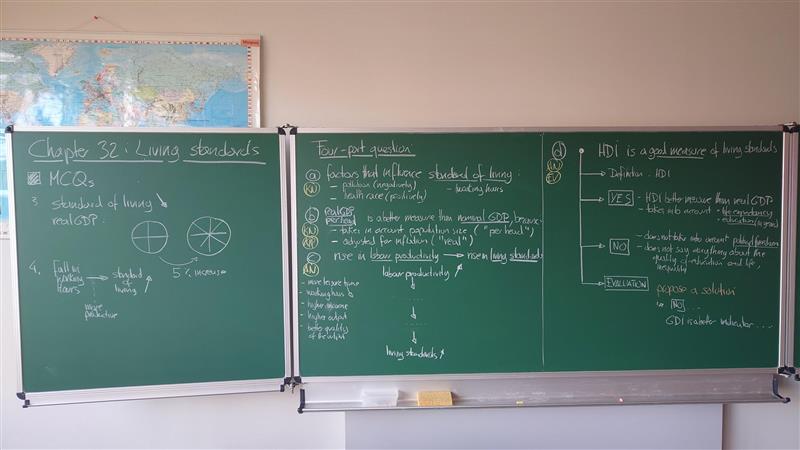 Chapter 32: Living standards
MCQs
3. standard of living
real GDP:
5% increase
4. Fall in → standard
working of
hours living
more
productive
Four-part question
a factors that influence standard of living:
- pollution (negatively) - working hours
- health care (positively)
b real GDP is a better measure than nominal GDP, because
per head
- takes in account population size ("per head")
- adjusted for inflation ("real")
c rise in labour productivity → rise in living standards
labour productivity
- more leisure time
- working hours
- higher income
- higher output
- better quality
of the output
living standards
d HDI is a good measure of living standards
Definition: HDI
YES - HDI better measure than real GDP
- takes into account - life expectancy
- education (in years)
NO - does not take into account political freedom
- does not say everything about the
quality of education and life,
inequality
EVALUATION propose a solution
NO ...
GDI is a better indicator ....